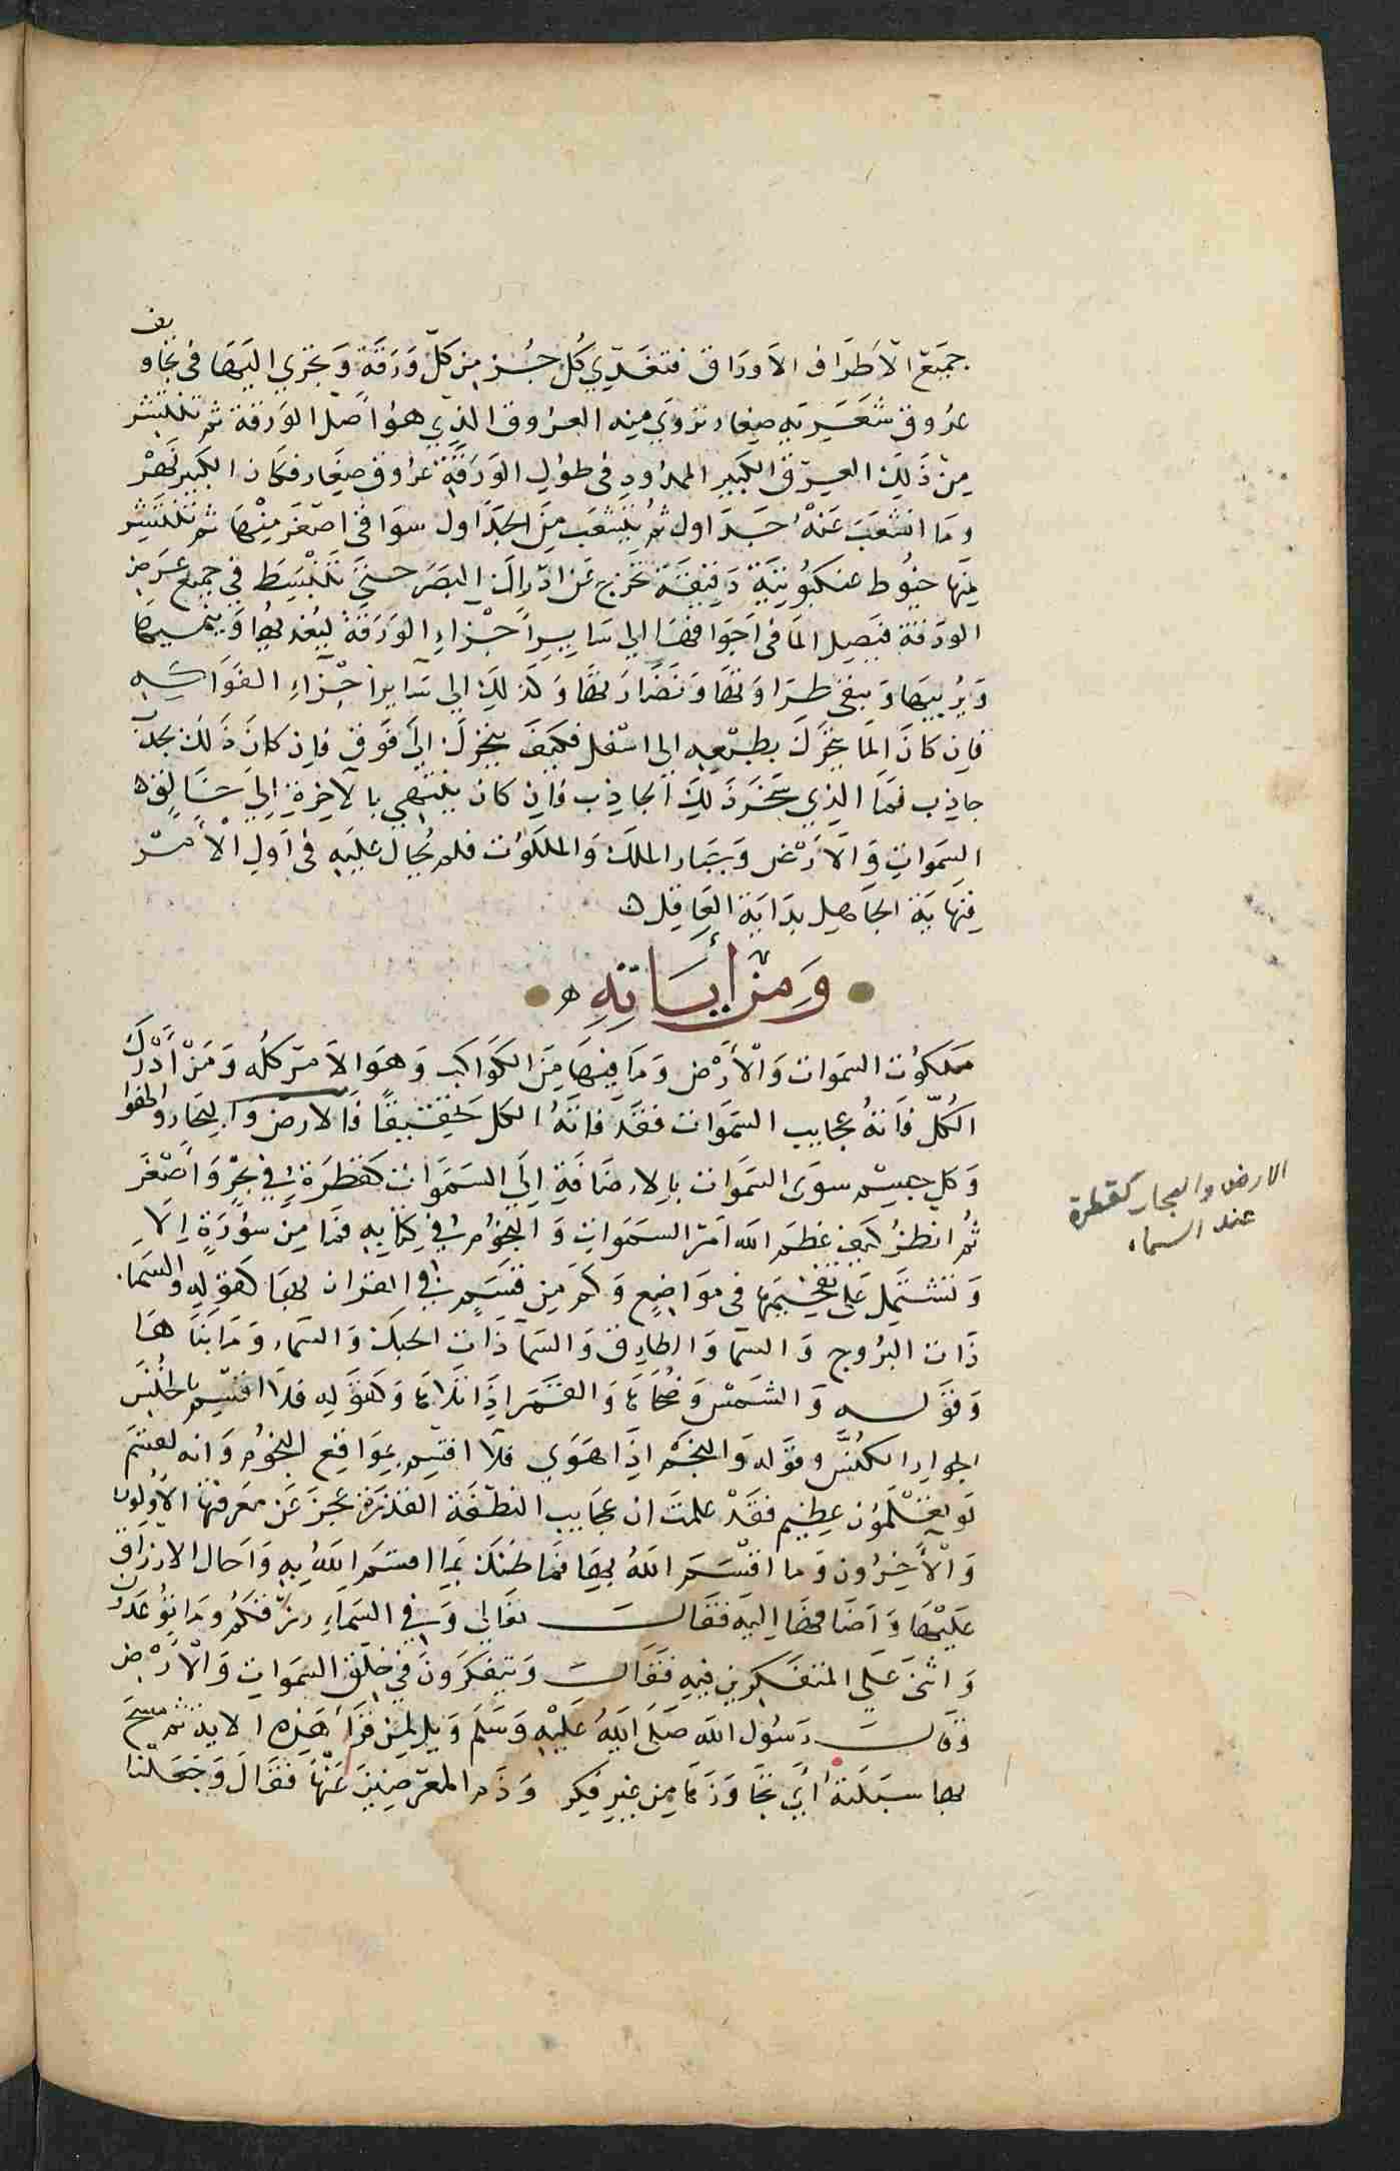 جميع الأطراف الاوراق فتغذي كل جزء من كل ورقة ويجري اليها في تجاويف
عروق شعرية صغار تروي منه العروق الذي هو اصل الورقة ثم تنتشر
من ذلك العرق الكبير الممدود في طول الورقة عروق صغار فكان الكبير نهر
وما انشعب عنه جداول ثم ينشعب من الجداول سواقي اصغر منها ثم تنتشر
منها خيوط عنكبوتية دقيقة تخرج عن ادراك البصر حتى تنبسط في جميع عرض
الورقة فيصل الما في اجوافها الى ساير اجزاء الورقة ليغذيها وينميها
ويربيها ويبقي طراوتها ونضارتها وكذلك الى ساير اجزاء الفواكه
فان كان الما يتحرك بطبعه الى اسفل فكيف يتحرك الى فوق فان كان ذلك بجذب
جاذب فما الذي سخر ذلك الجاذب فان كان ينتهي بالآخرة الى خالق
السموات والأرض وجبار الملك والملكوت فلم يحال عليه في اول الأمر
فنهاية الجاهل بداية العاقل ه
ومن أياته ه
ملكوت السموات والأرض وما فيها من الكواكب وهو الامر كله ومن أدرك
الكل فاته عجايب السموات فقد فاته الكل تحقيقا فالارض والبحار والهوا
وكل جسم سوى السموات بالاضافة الى السموات كقطرة في بحر وأصغر
ثم انظر كيف عظم الله امر السموات والنجوم في كتابه فما من سورة الا
وتشتمل على تفخيمها في مواضع وكم من قسم في القران بها كقوله والسماء
ذات البروج والسما والطارق والسما ذات الحبك والسماء وما بناها
وقوله والشمس وضحاها والقمر اذا تلاها وكقوله فلا اقسم بالخنس
الجوار الكنس وقوله والنجم اذا هوى فلا اقسم بمواقع النجوم وانه لقسم
لو تعلمون عظيم فقد علمت ان عجايب النطفة القذرة عجز عن معرفتها الأولون
والآخرون وما اقسم الله بها فما ظنك بما اقسم الله به وأحال الارزاق
عليها واضافها اليه فقال تعالى وفي السماء رزقكم وما توعدون
واثنى على المتفكرين فيه فقال ويتفكرون في خلق السموات والأرض
وقال رسول الله صلى الله عليه وسلم ويل لمن قرأ هذه الاية ثم مسح
بها سبلته أي تجاوزها من غير فكر وذم المعرضين عنها فقال وجعلنا
الارض والبحار كقطرة
عند السماء